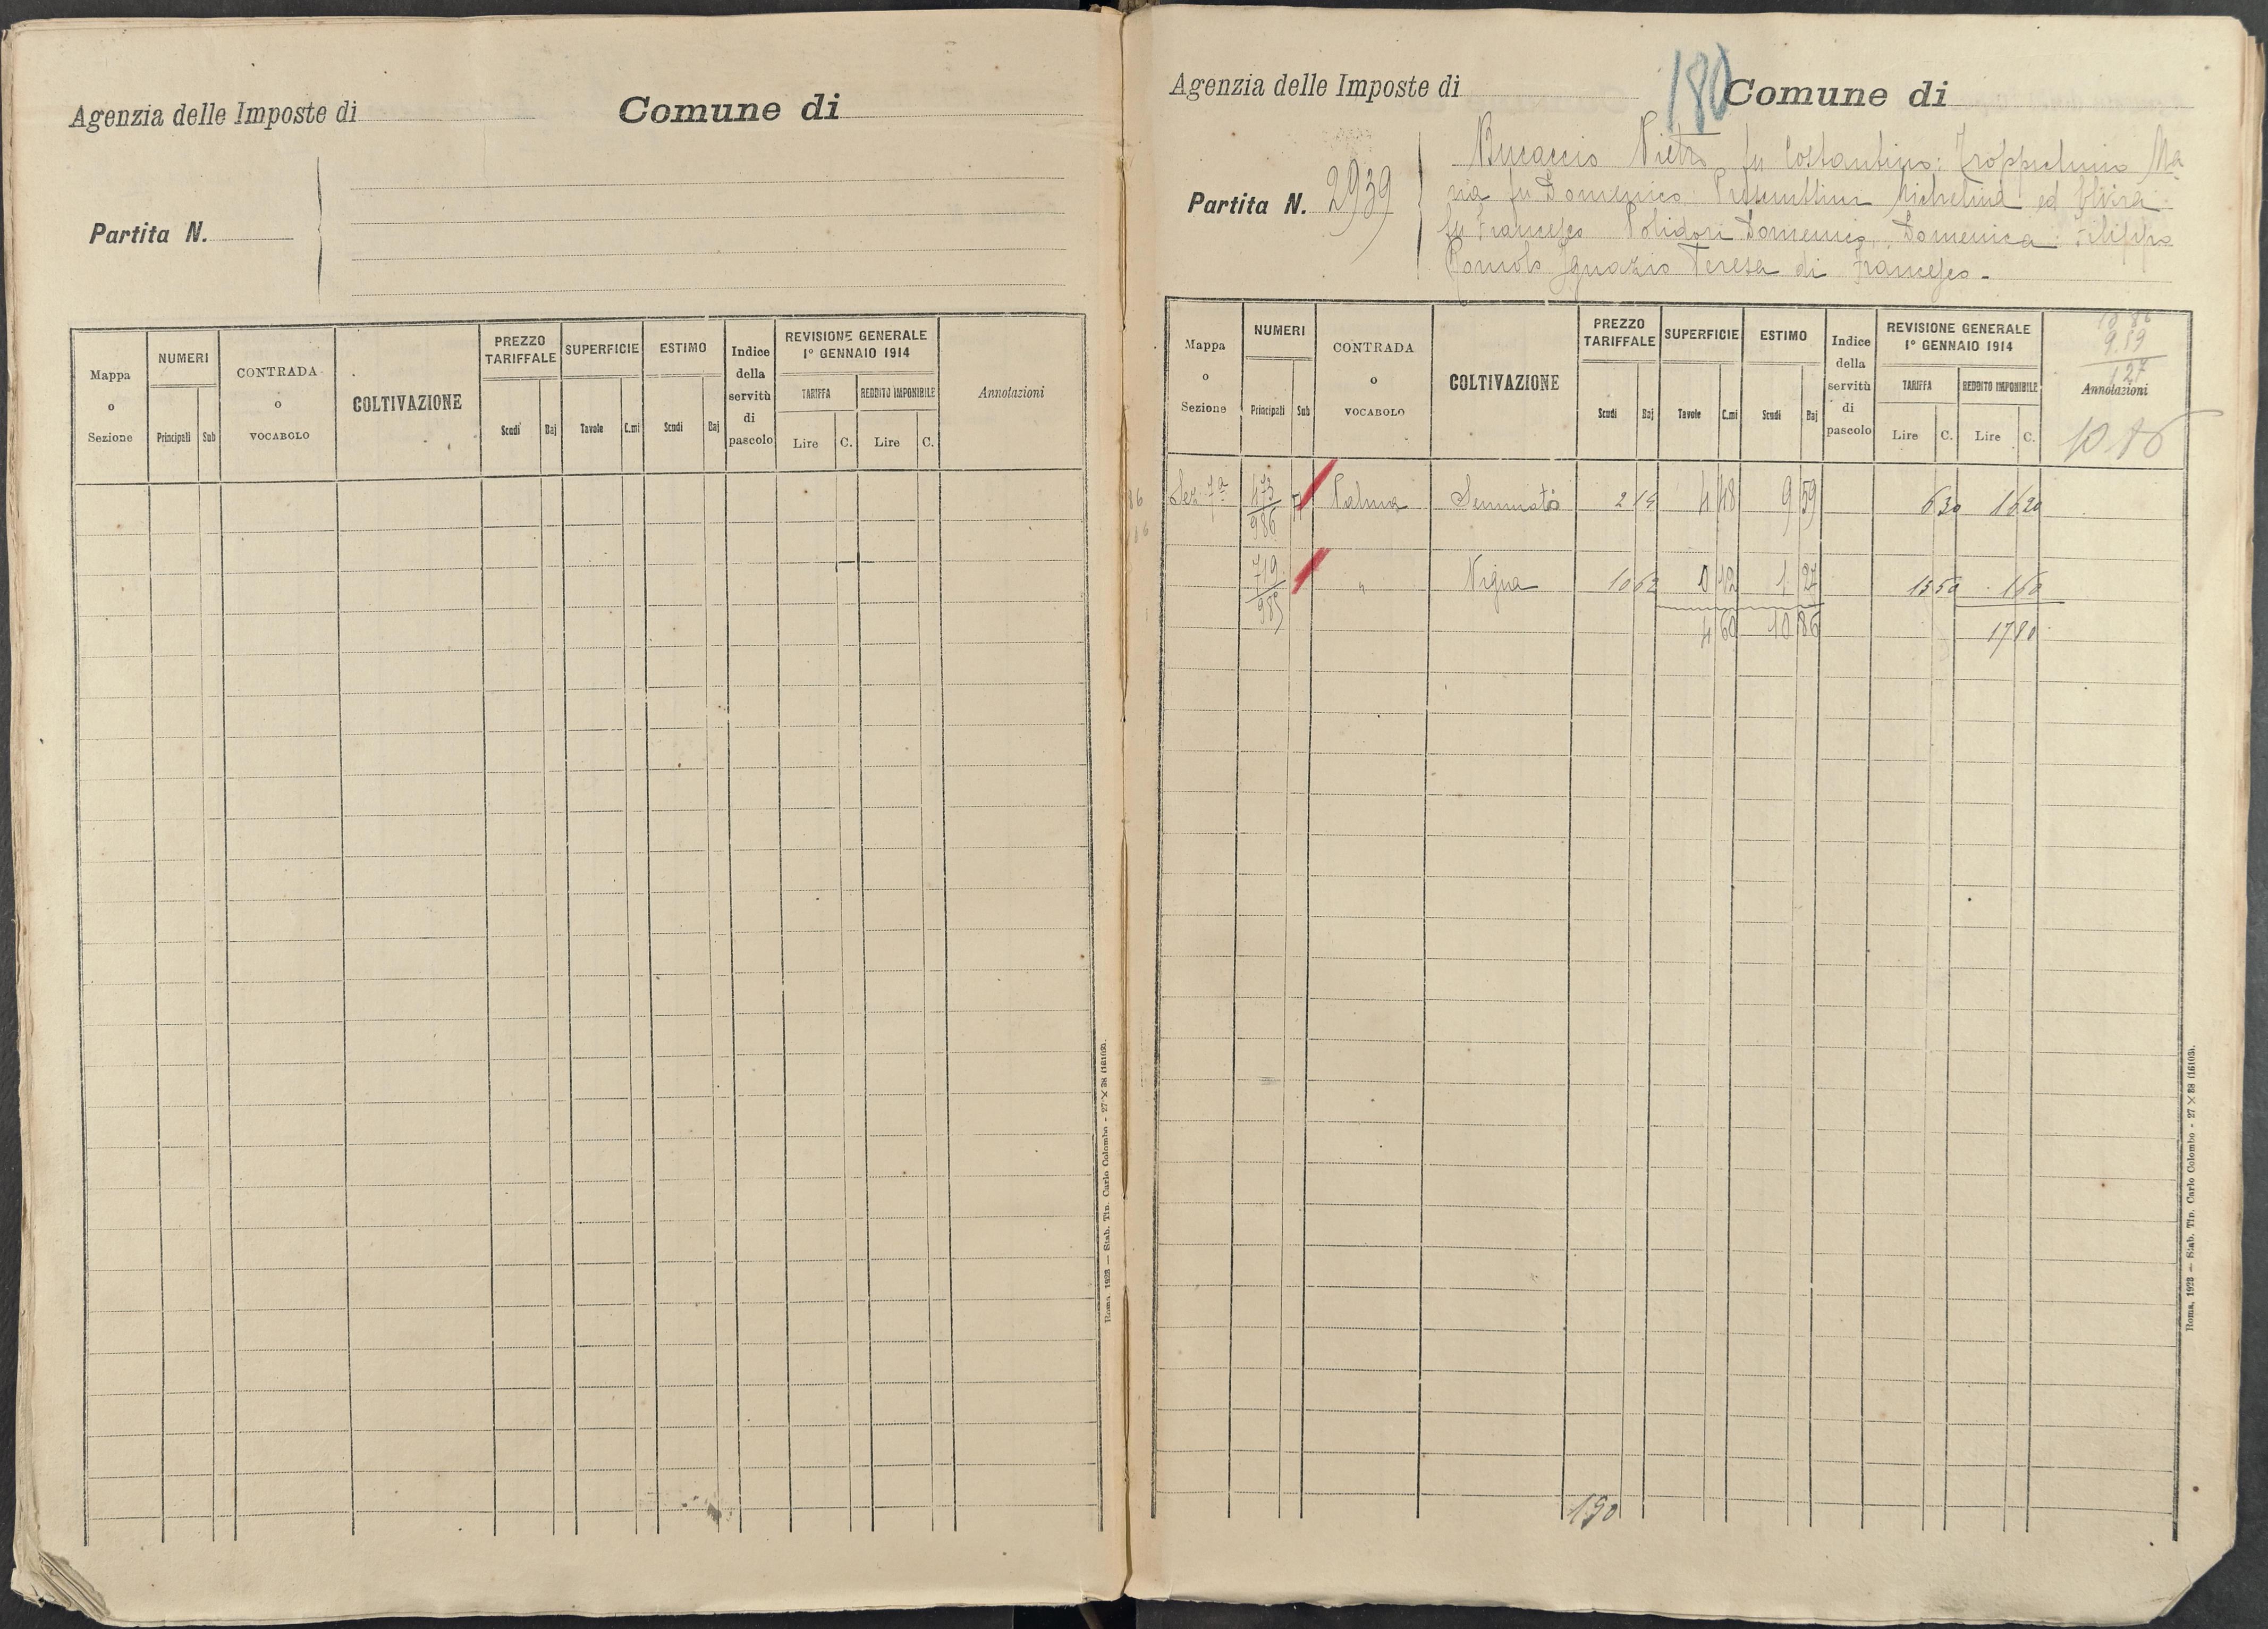 Agenzia delle Imposte di
Comune di
Partita N.
Mappa o Sezione
NUMERI
Principali
Sub
CONTRADA o VOCABOLO
COLTIVAZIONE
PREZZO TARIFFALE
Scudi
Baj
SUPERFICIE
Tavole
C.mi
ESTIMO
Scudi
Baj
Indice della servitù di pascolo
REVISIONE GENERALE
1° GENNAIO 1914
TARIFFA
REDDITO IMPONIBILE
Lire
C.
Lire
C.
Annotazioni
Roma, 1923 — Stab. Tip. Carlo Colombo - 27 × 38 (16103).
Agenzia delle Imposte di
180
Comune di
Partita N. 2939
Bucaccio Pietro fu Costantino: Ma
ria fu Domenico Michelina ed Elvira
fu Francesco Polidori Domenico, Domenica Filippo
Romolo Ignazio Teresa di Francesco -
Mappa o Sezione
NUMERI
Principali
Sub
CONTRADA o VOCABOLO
COLTIVAZIONE
PREZZO TARIFFALE
Scudi
Baj
SUPERFICIE
Tavole
C.mi
ESTIMO
Scudi
Baj
Indice della servitù di pascolo
REVISIONE GENERALE
1° GENNAIO 1914
TARIFFA
REDDITO IMPONIBILE
Lire
C.
Lire
C.
10 86
9.59
1 27
Annotazioni
10 86
Sez. 7ª 473/986 Palma Seminato 2 14 4 48 9 59 6 30 16 20
719/985 " Vigna 10 62 0 12 1 27 13 50 1 60
4 60 10 86 17 80
190
Roma, 1923 — Stab. Tip. Carlo Colombo - 27 × 38 (16103).